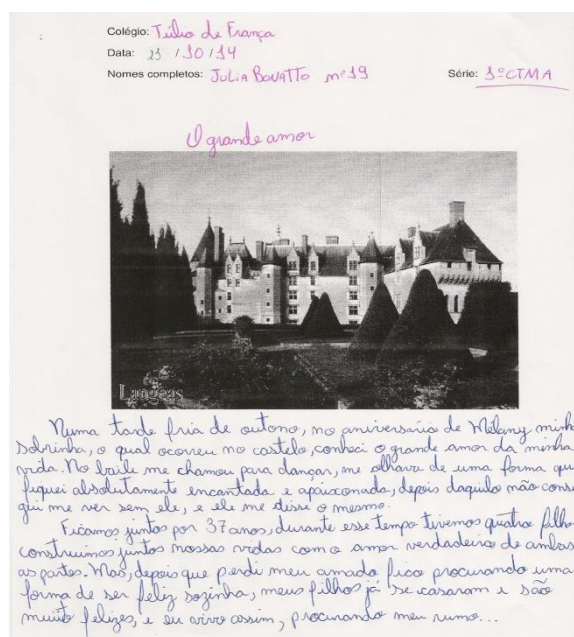 Colégio: Túlio de França
Data: 23 / 10 / 14
Nomes completos: Julia Bovatto nº 19 Série: 1º CTMA
O grande amor
Langeais
Numa tarde fria de outono, no aniversário de Mélany minha
sobrinha, o qual ocorreu no castelo, conheci o grande amor da minha
vida. No baile me chamou para dançar, me olhava de uma forma que
fiquei absolutamente encantada e apaixonada, depois daquilo não conse
gui me ver sem ele, e ele me disse o mesmo.
Ficamos juntos por 37 anos, durante esse tempo tivemos quatro filho
construimos juntos nossas vidas com o amor verdadeiro de ambas
as partes. Mas, depois que perdi meu amado fico procurando uma
forma de ser feliz sozinha, meus filhos já se casaram e são
muito felizes, e eu vivo assim, procurando meu rumo...